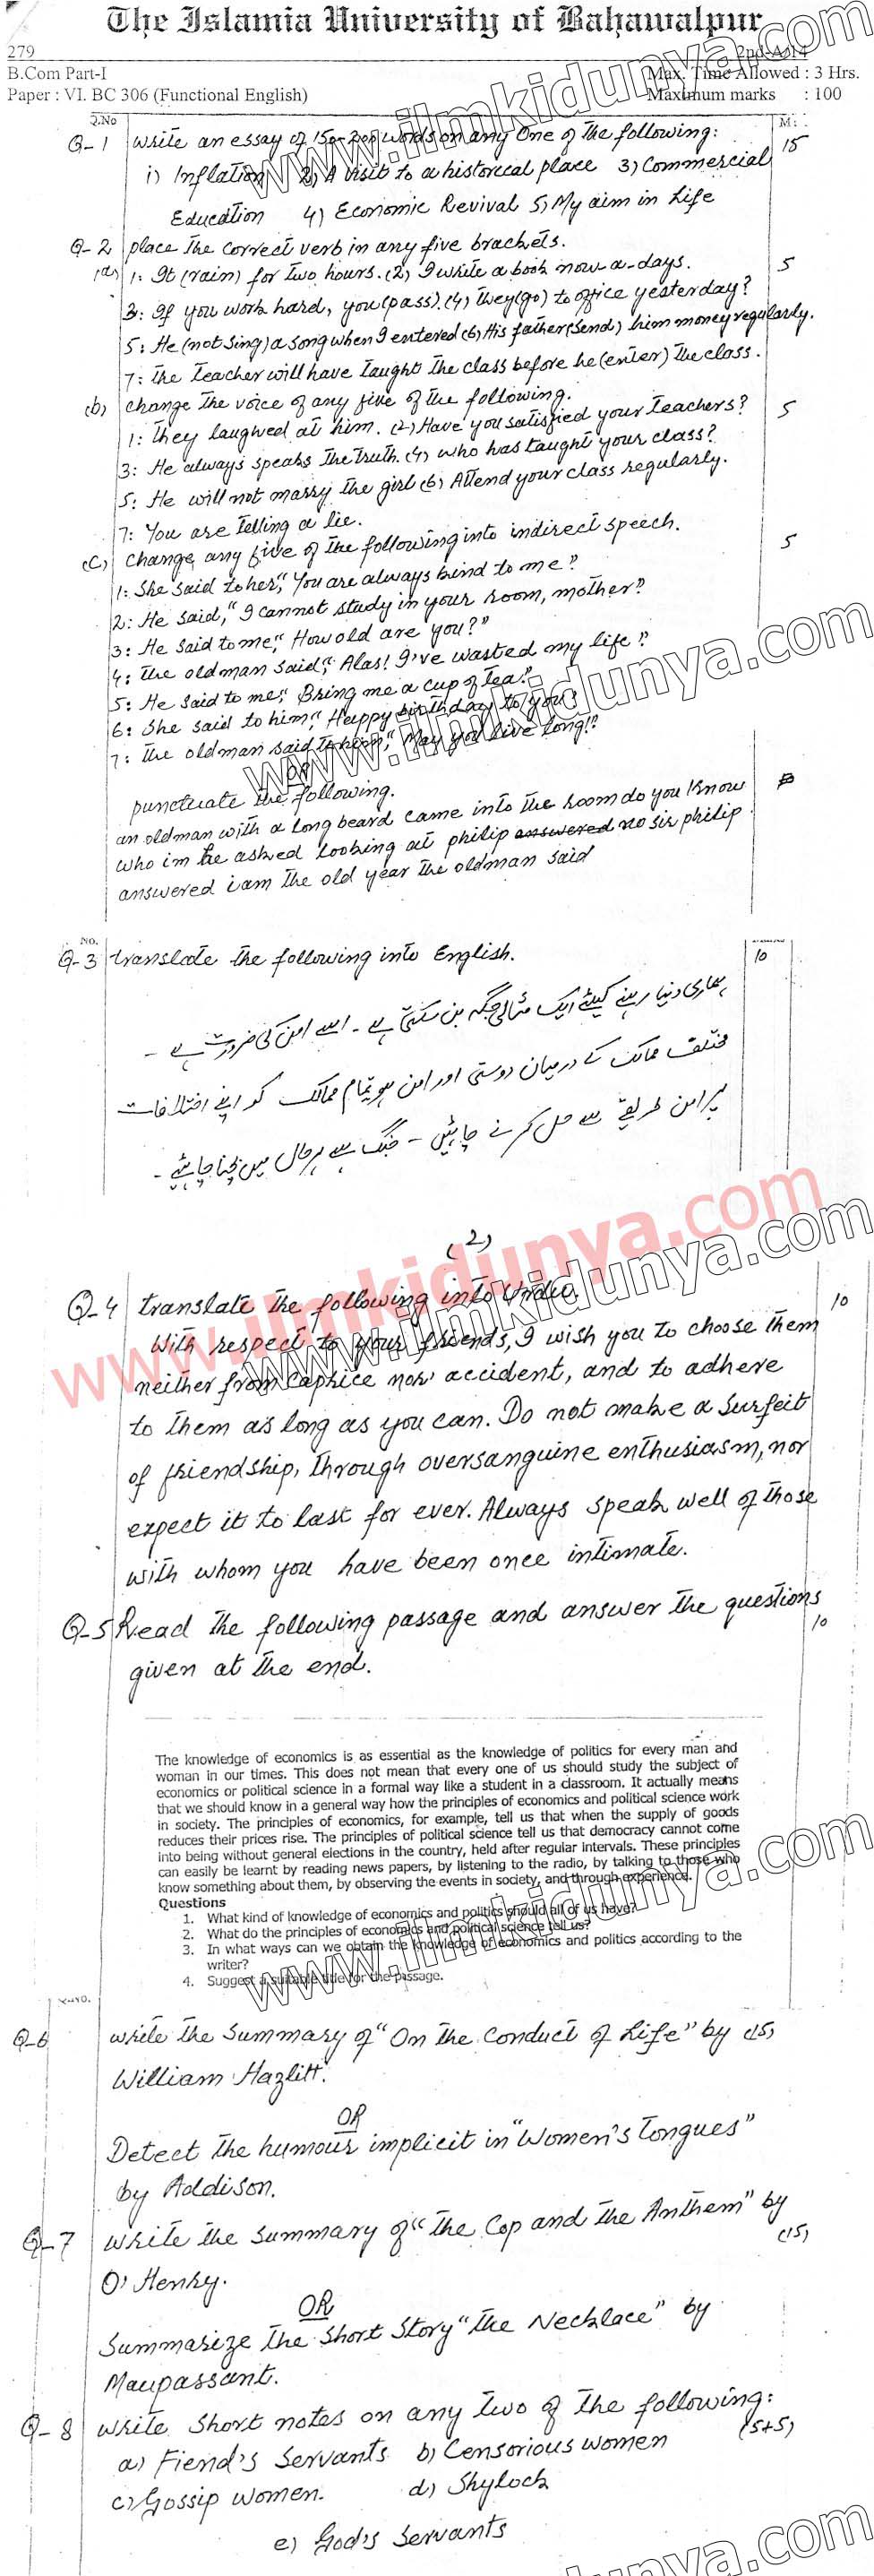 The Islamia University of Bahawalpur
279 2nd-A/14
B.Com Part-I Max. Time Allowed : 3 Hrs.
Paper : VI. BC 306 (Functional English) Maximum marks : 100
Q.No M:
Q-1 Write an essay of 150-200 words on any One of the following: 15
i) Inflation 2) A visit to a historical place 3) Commercial
Education 4) Economic Revival 5) My aim in Life
Q-2 place the correct verb in any five brackets.
(a) 1: It (rain) for two hours. (2) I write a book now-a-days. 5
3: If you work hard, you (pass). (4) They (go) to office yesterday?
5: He (not sing) a song when I entered (6) His father (send) him money regularly.
7: The Teacher will have taught the class before he (enter) the class.
(b) change the voice of any five of the following. 5
1: They laughed at him. (2) Have you satisfied your teachers?
3: He always speaks the truth. (4) who has taught your class?
5: He will not marry the girl (6) Attend your class regularly.
7: You are telling a lie.
(c) change any five of the following into indirect speech. 5
1: She said to her, "You are always kind to me".
2: He said, "I cannot study in your room, mother".
3: He said to me, "How old are you?"
4: The oldman said, "Alas! I've wasted my life".
5: He said to me, "Bring me a cup of tea".
6: She said to him, "Happy birthday to you".
7: The oldman said to him, "May you live long!".
OR
punctuate the following.
an oldman with a long beard came into the room do you know
who im he asked looking at philip answered no sir philip
answered i am the old year the oldman said
No.
Q-3 translate the following into English. 10
ہماری دنیا رہنے کیلئے ایک مثالی جگہ بن سکتی ہے۔ اسے امن کی ضرورت ہے۔
مختلف ممالک کے درمیان دوستی اور امن ہو تمام ممالک کو اپنے اختلافات
پرامن طریقے سے حل کرنے چاہئیں۔ جنگ سے ہر حال میں بچنا چاہیئے۔
(2)
Q-4 translate the following into Urdu. 10
With respect to your friends, I wish you to choose them
neither from caprice nor accident, and to adhere
to them as long as you can. Do not make a surfeit
of friendship, through oversanguine enthusiasm, nor
expect it to last for ever. Always speak well of those
with whom you have been once intimate.
Q-5 Read the following passage and answer the questions 10
given at the end.
The knowledge of economics is as essential as the knowledge of politics for every man and
woman in our times. This does not mean that every one of us should study the subject of
economics or political science in a formal way like a student in a classroom. It actually means
that we should know in a general way how the principles of economics and political science work
in society. The principles of economics, for example, tell us that when the supply of goods
reduces their prices rise. The principles of political science tell us that democracy cannot come
into being without general elections in the country, held after regular intervals. These principles
can easily be learnt by reading news papers, by listening to the radio, by talking to those who
know something about them, by observing the events in society, and through experience.
Questions
1. What kind of knowledge of economics and politics should all of us have?
2. What do the principles of economics and political science tell us?
3. In what ways can we obtain the knowledge of economics and politics according to the
writer?
4. Suggest a suitable title for the passage.
Q-6 write the summary of "On the Conduct of Life" by (15)
William Hazlitt.
OR
Detect the humour implicit in "Women's Tongues"
by Addison.
Q-7 write the summary of "The Cop and the Anthem" by (15)
O' Henry.
OR
Summarize the short story "The Necklace" by
Maupassant.
Q-8 write short notes on any two of the following: (5+5)
a) Fiend's servants b) Censorious women
c) Gossip women. d) Shylock
e) God's servants
www.ilmkidunya.com
www.ilmkidunya.com
www.ilmkidunya.com
www.ilmkidunya.com
www.ilmkidunya.com